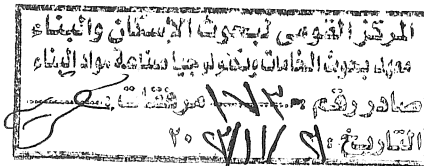 المركز القومى لبحوث الإسكان والبناء
معهد بحوث الخامات وتكنولوجيا صناعة مواد البناء
صادر رقم : مرفقات
التاريخ : ٢٠